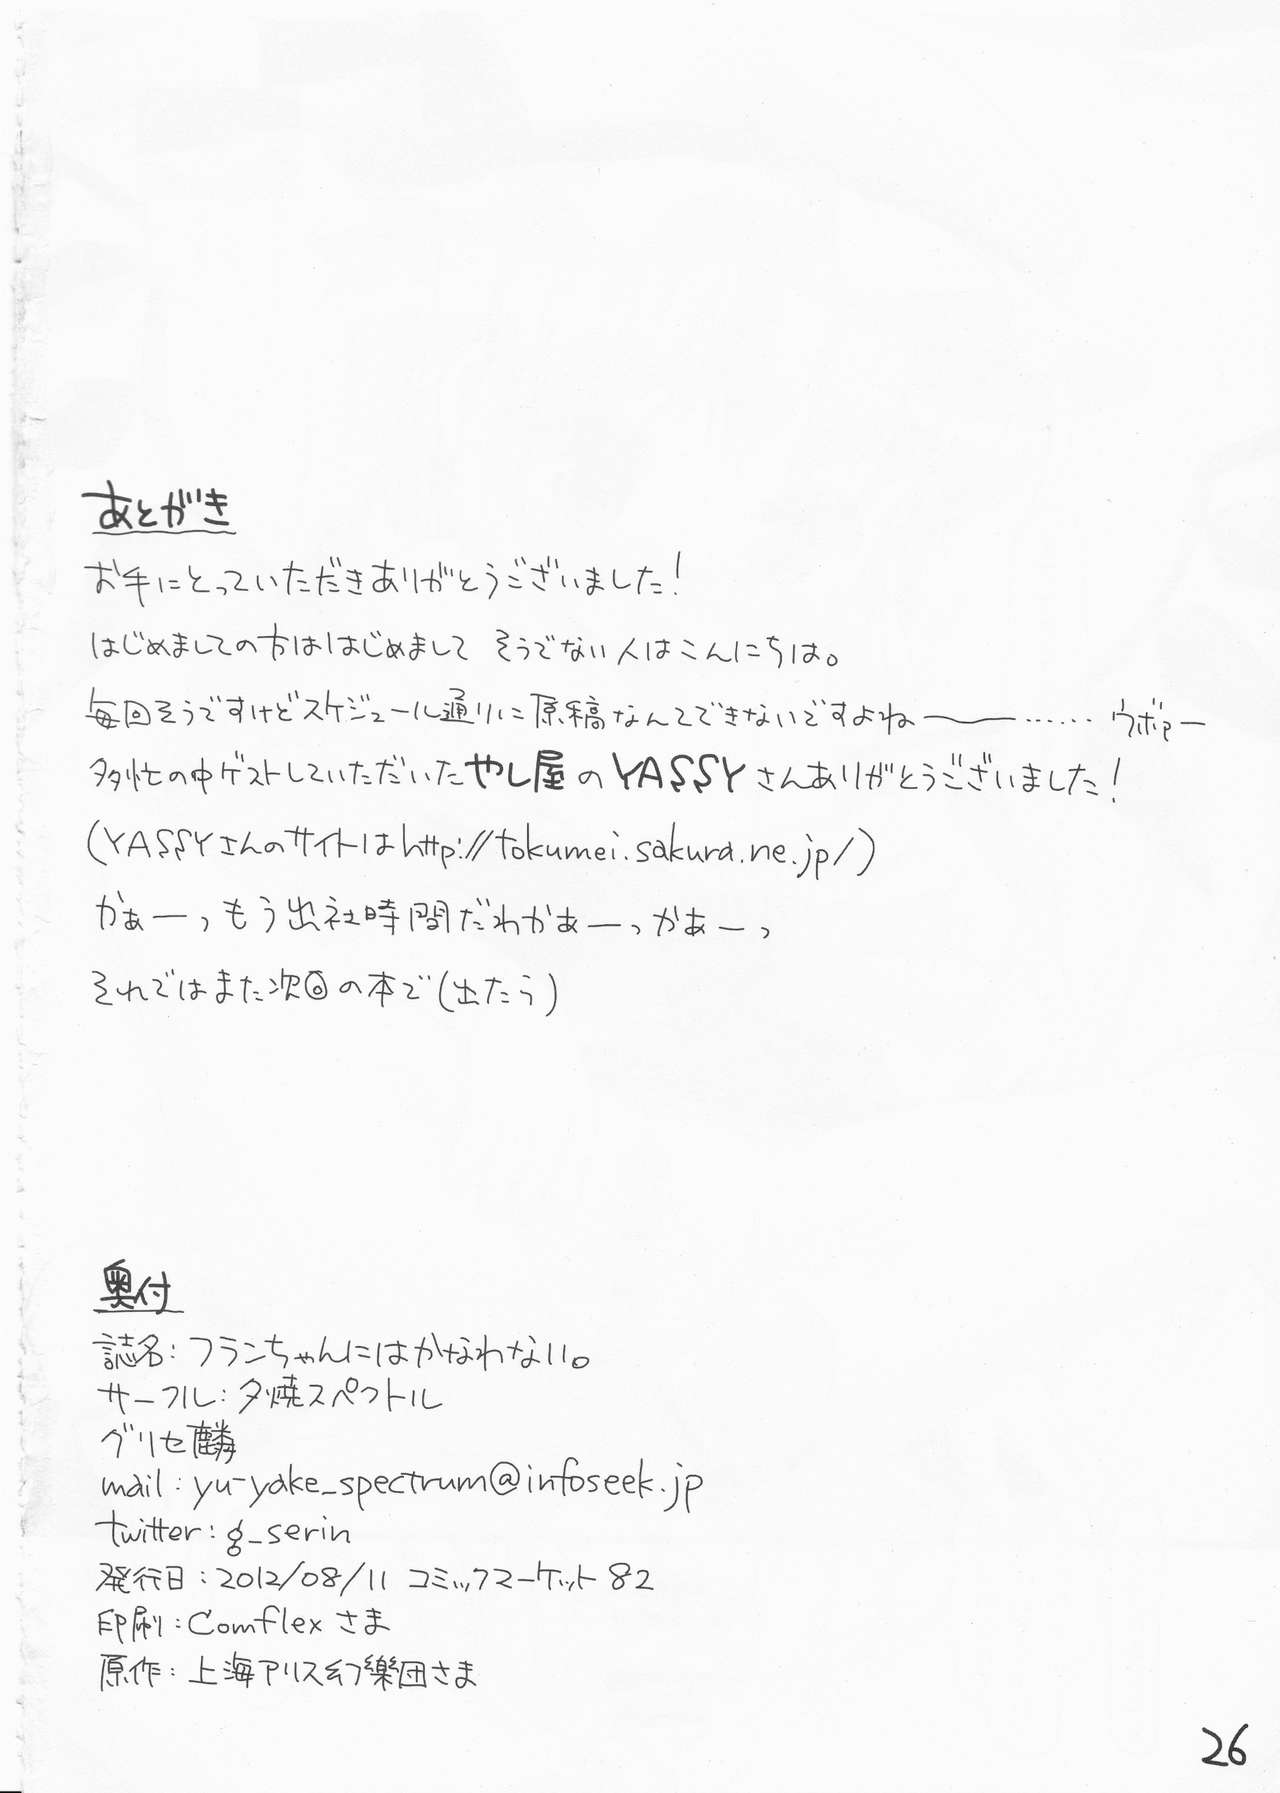 あとがき
お手にとっていただきありがとうございました！
はじめましての方ははじめまして そうでない人はこんにちは。
毎回そうですけどスケジュール通りに原稿なんてできないですよねー――…… ウボァー
多忙の中ゲストしていただいたやし屋のYASSYさんありがとうございました！
(YASSYさんのサイトはhttp://tokumei.sakura.ne.jp/)
かぁーっもう出社時間だわかぁーっかぁーっ
それではまた次回の本で(出たらう)
奥付
誌名：フランちゃんにはかなわない。
サークル：夕焼スペクトル
グリセ麟
mail：yu-yake_spectrum@infoseek.jp
twitter：g_serin
発行日：2012/08/11 コミックマーケット82
印刷：Comflexさま
原作：上海アリス幻樂団さま
26